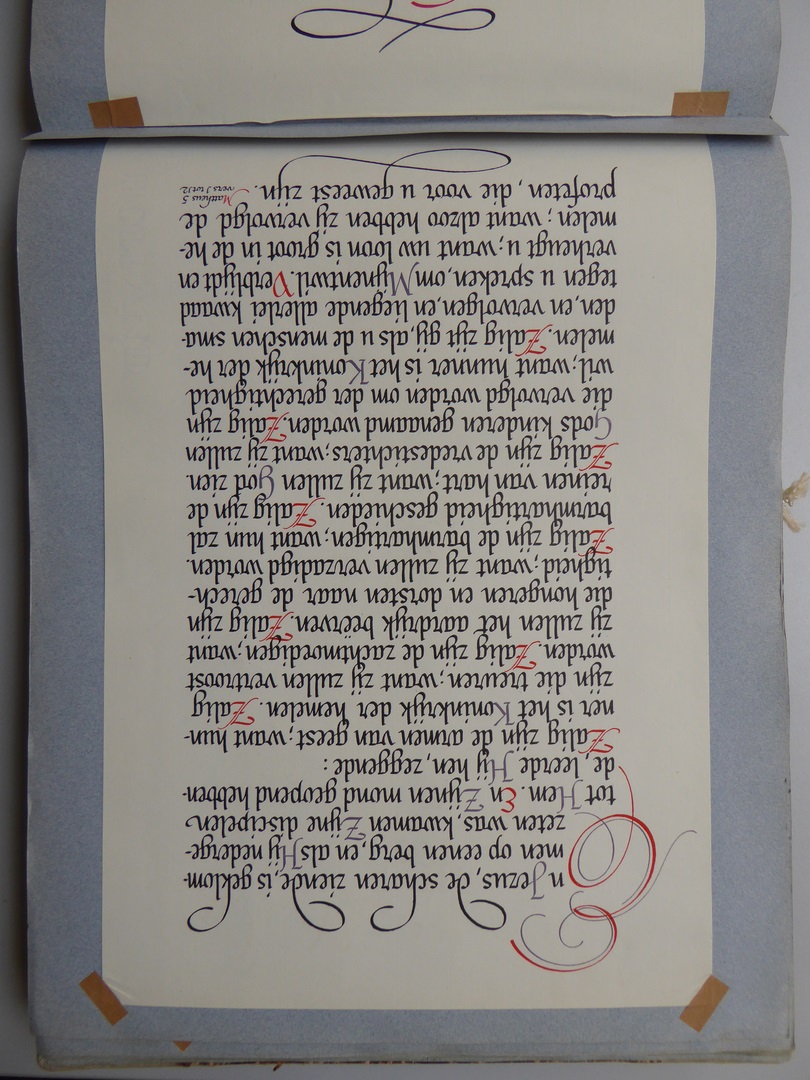 En Jezus, de scharen ziende, is geklom-
men op eenen berg, en als Hij nederge-
zeten was, kwamen Zijne discipelen
tot Hem. En Zijnen mond geopend hebben-
de, leerde Hij hen, zeggende:
Zalig zijn de armen van geest; want hun-
ner is het Koninkrijk der hemelen. Zalig
zijn die treuren; want zij zullen vertroost
worden. Zalig zijn de zachtmoedigen; want
zij zullen het aardrijk beërven. Zalig zijn
die hongeren en dorsten naar de gerech-
tigheid; want zij zullen verzadigd worden.
Zalig zijn de barmhartigen; want hun zal
barmhartigheid geschieden. Zalig zijn de
reinen van hart; want zij zullen God zien.
Zalig zijn de vredestichters; want zij zullen
Gods kinderen genaamd worden. Zalig zijn
die vervolgd worden om der gerechtigheid
wil; want hunner is het Koninkrijk der he-
melen. Zalig zijt gij, als u de menschen sma-
den, en vervolgen, en liegende allerlei kwaad
tegen u spreken, om Mijnentwil. Verblijdt en
verheugt u; want uw loon is groot in de he-
melen; want alzoo hebben zij vervolgd de
profeten, die voor u geweest zijn.
Mattheus 5
vers 1 tot 12